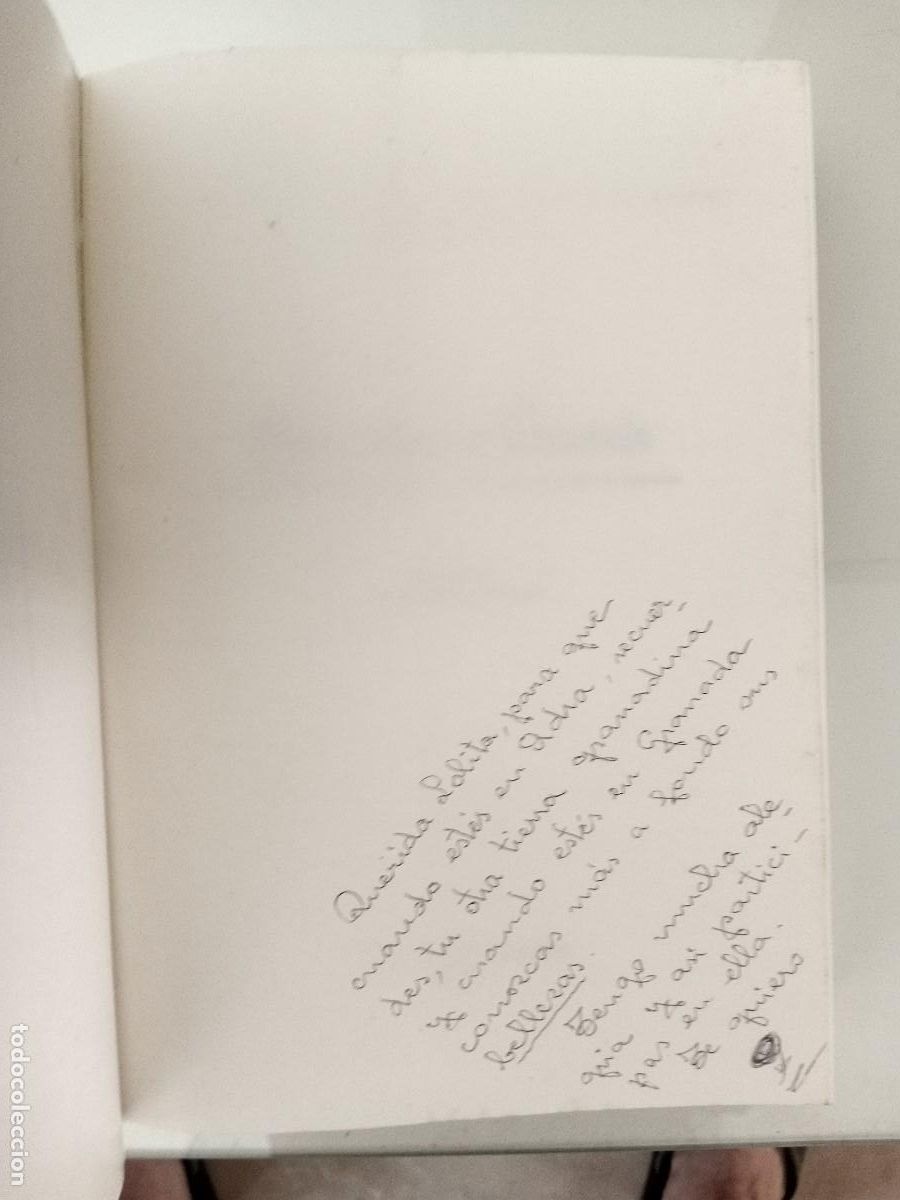 Querida Lolita, para que
cuando estés en Adra, recuer-
des, tu otra tierra granadina
y cuando estés en Granada
conozcas más a fondo sus
bellezas. Tengo mucha ale-
gria y asi partici-
pas en ella.
Te quiero
todocoleccion